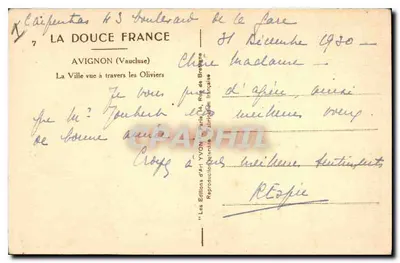 Carpentras 43 boulevard de la Gare
7 LA DOUCE FRANCE
31 Décembre 1930 -
AVIGNON (Vaucluse)
La Ville vue à travers les Oliviers
Chère Madame -
Je vous prie d'agréer, ainsi
que Mr Joubert mes meilleurs vœux
de bonne année
Croyez à mes meilleurs sentiments
"Les Editions d'Art YVON"
CPARAMA